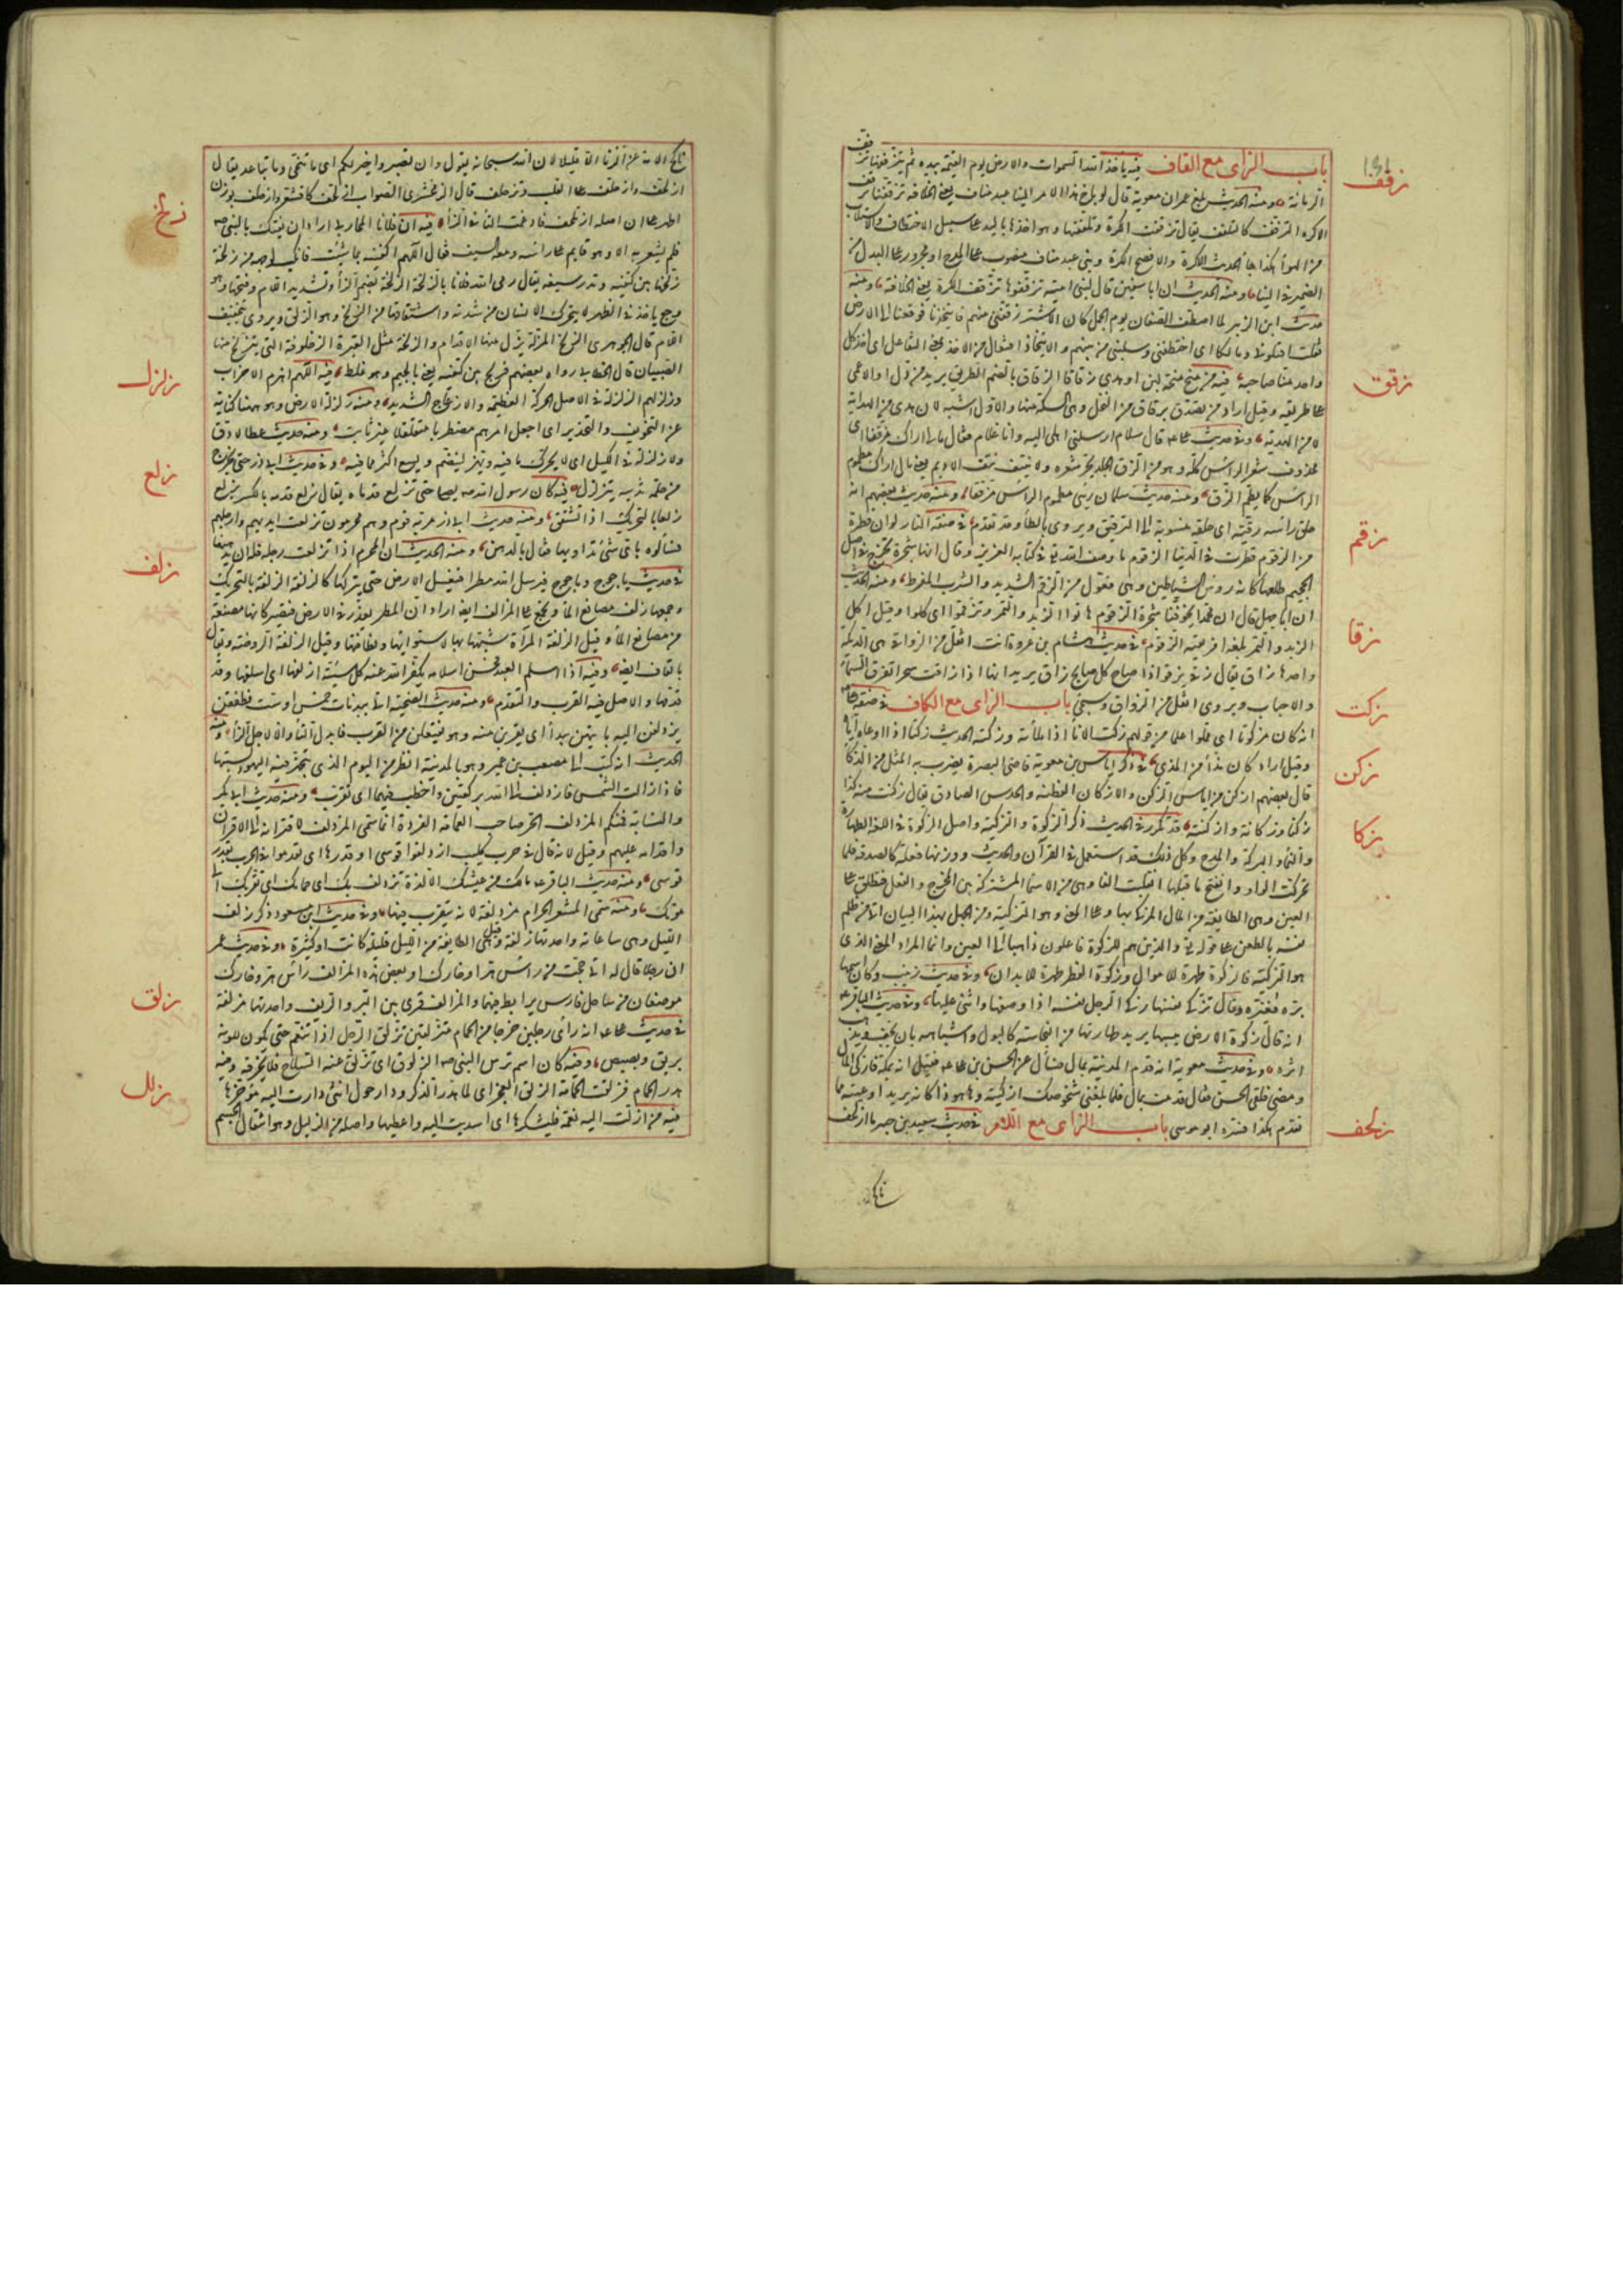 زقف
باب الزاى مع القاف فيه يأخذ الله السموات والارض يوم القيمة بيده ثم يتزقفها تزقف
الرمانة ومنه الحديث بلغ عمر ان معوية قال لو بلغ هذا الامر الينا عبد مناف يعنى الخلافة تزقفناه تزقف
الاكرة التزقف كالتلقف يقال تزقفت الكرة وتلقفتها وهو اخذها باليد على سبيل الاختطاف والاستلاب
من الهوأ هكذا جأ الحديث الاكرة والافصح الكرة وبنى عبد مناف منصوب على المدح او مجرور على البدل من
الضمير فى الينا ومنه الحديث ان ابا سفين قال لبنى امية تزقفوها تزقف الكرة يعنى الخلافة ومنه
حديث ابن الزبير لما اصطف الصفان يوم الجمل كان الاشتر زقفنى منهم فايتخذنا فوقعنا الى الارض
فقلت اقتلونى ومالكا اى اختطفنى واستلبنى من بينهم والايتخاذ افتعال من الاخذ بمعنى التفاعل اى اخذ كل
زقق
واحد منا صاحبه فيه من منح منحة لبن او هدى زقاقا الزقاق بالضم الطريق يريد من دل الضال او الاعمى
على طريقه وقيل اراد من تصدق بزقاق من النخل وهى السكة منها والاول اشبه لان هدى من الهداية
لا من الهدية وفى حديث على قال سلام ارسلنى اهلى اليه وانا غلام فقال ما لى اراك مزققا اى
محذوف شعر الرأس كله وهو من الزق الجلد يجز شعره ولا ينتف نتف الاديم يعنى مالى اراك مطموم
الرأس كما يطم الزق ومنه حديث سلمان رئى مطموم الرأس مزققا ومنه حديث بعضهم انه
زقم
حلق رأسه زقية اى حلقة منسوبة الى التزقيق ويروى بالطأ وقد تقدم فى صفة النار لو ان قطرة
من الزقوم قطرت فى الدنيا الزقوم ما وصف الله تع فى كتابه العزيز وقال انها شجرة تخرج فى اصل
الجحيم طلعها كانه رؤس الشياطين وهى فعول من الزقم الشديد والشرب المفرط ومنه الحديث
ان ابا جهل قال ان محمدا يخوفنا شجرة الزقوم هاتوا الزبد والتمر وتزقموا اى كلوا وقيل اكل
زقا
الزبد والتمر بلغة افريقية الزقوم فى حديث هشام بن عروة انت اثقل من الزواقى هى الديكة
واحدها زاق يقال زقى يزقو اذا صاح وكل صايح زاق يريد انها اذا زقت سحرا تفرق السمار
زكت
والاحباب ويروى اثقل من الزاووق وسيجئ باب الزاى مع الكاف فى صفة على
انه كان مزكوتا اى مملوا علما من قولهم زكت الانأ اذا ملأته وزكته الحديث زكتا اذا اوعاه اياه
زكن
وقيل اراد كان مذأ من المذى فى ذكر اياس بن معوية قاضى البصرة يضرب به المثل من الذكأ
قال بعضهم ازكن من اياس الزكن والازكان الفطنة والحدس الصادق يقال زكنت منه كذا
زكا
زكنا وزكانة وازكنته قد تكرر فى الحديث ذكر الزكوة والتزكية واصل الزكوة فى اللغة الطهارة
والنمأ والبركة والمدح وكل ذلك قد استعمل فى القرآن والحديث ووزنها فعلة كالصدقة فلما
تحركت الواو وانفتح ما قبلها انقلبت الفا وهى من الاسمأ المشتركة بين المخرج والفعل فتطلق على
العين وهى الطايفة من المال المزكى بها وعلى المعنى وهو التزكية ومن الجهل بهذا البيان اتى من ظلم
نفسه بالطعن على قوله تع والذين هم للزكوة فاعلون ذاهبا الى العين وانما المراد المعنى الذى
هو التزكية فالزكوة طهرة للاموال وزكوة الفطر طهرة للابدان وفى حديث زينب وكان اسمها
برة فغيره وقال تزكى نفسها زكى الرجل نفسه اذا وصفها واثنى عليها وفى حديث الباقر
انه قال زكوة الارض يبسها يريد طهارتها من النجاسة كالبول واشباهه بان يجف ويذهب
اثره وفى حديث معوية انه قدم المدينة بمال فسأل عن الحسن بن على فقيل انه بمكة فازكى المال
ومضى فلقى الحسن فقال قدمت بمال فلما بلغنى شخوصك ازكيته وها هوذا كانه يريد اوعيته مما
زلحف
تقدم هكذا فسره ابو موسى باب الزاى مع اللام فى حديث سعيد بن جبير ما ازلحف
ناكح
ناكح الامة عن الزنا الا قليلا لان الله سبحانه يقول وان تصبروا خير لكم اى ما تنحى وما تباعد يقال
ازلحف وازحلف على القلب وتزحلف قال الزمخشرى الصواب ازلحف كاقشعر وازحلف بوزن
زلخ
اطهر على ان اصله ازتلحف فادغمت التأ فى الزأ فيه ان فلانا المحاربى اراد ان يفتك بالنبى
فلم يشعر به الا وهو قايم على رأسه ومعه السيف فقال اللهم اكفنيه بما شئت فانكب لوجهه من زلخة
زلخها بين كتفيه وندر سيفه يقال رمى الله فلانا بالزلخة الزلخة بضم الزأ وتشديد اللام وفتحها وهو
وجع يأخذ فى الظهر لا يتحرك الانسان من شدته واشتقاقها من الزلخ وهو الزلق ويروى بتخفيف
اللام قال الجوهرى الزلخ المزلة يزل منها الاقدام والزلخة مثل القبرة الزحلوقة التى يتزلخ منها
زلزل
الصبيان قال الخطابى رواه بعضهم فزلج بين كتفيه يعنى بالجيم وهو غلط فيه اللهم اهزم الاحزاب
وزلزلهم الزلزلة فى الاصل الحركة العظيمة والازعاج الشديد ومنه زلزلة الارض وهو ههنا كناية
عن التخويف والتحذير اى اجعل امرهم مضطربا متقلقلا غير ثابت ومنه حديث عطا لا دق
ولا زلزلة فى الكيل اى لا يحرك ما فيه ويهز لينضم ويسع اكثر مما فيه وفى حديث ابى ذر حتى يخرج
زلع
من حلمة ثدييه يتزلزل فيه كان رسول الله يصلى حتى تزلع قدماه يقال زلع قدمه بالكسر يزلع
زلعا بالتحريك اذا تشقق ومنه حديث ابى ذر مر به قوم وهم محرمون تزلعت ايديهم وارجلهم
فسألوه باى شئ نداويها فقال بالدهن ومنه الحديث ان المحرم اذا تزلعت رجله فله ان يدهنها
زلف
فى حديث ياجوج وماجوج فيرسل الله مطرا فيغسل الارض حتى يتركها كالزلفة الزلفة بالتحريك
وجمعها زلف مصانع المأ وتجمع على المزالف ايضا اراد ان المطر يغدر فى الارض فتصير كانها مصنعة
من مصانع المأ وقيل الزلفة المرآة شبهها بها لاستوائها ونظافتها وقيل الزلفة الروضة ويقال
بالقاف ايضا وفيه اذا اسلم العبد فحسن اسلامه يكفر الله عنه كل سيئة ازلفها اى اسلفها وقد
قدمها والاصل فيه القرب والتقدم ومنه حديث الضحية اتى ببدنات خمس او ست فطفقن
يزدلفن اليه بايتهن يبدأ اى يقربن منه وهو يفتعلن من القرب فابدل التأ دالا لاجل الزأ ومنه
الحديث انه كتب الى مصعب بن عمير وهو بالمدينة انظر من اليوم الذى تتجهز فيه اليهود لسبتها
فاذا زالت الشمس فازدلف الى الله بركعتين واخطب فيهما اى تقرب ومنه حديث ابى بكر
والنسابة فمنكم المزدلف الحر صاحب العمامة الفردة انما سمى المزدلف لاقترابه الى الاقران
واقدامه عليهم وقيل لانه قال فى حرب كليب ازدلفوا قوسى او قدرها اى تقدموا فى الحرب بقدر
قوسى ومنه حديث الباقر مالك من عيشك الا لذة تزدلف بك الى حمامك اى تقربك الى
موتك ومنه سمى المشعر الحرام مزدلفة لانه يتقرب فيها وفى حديث ابن مسعود ذكر زلف
الليل وهى ساعاته واحدتها زلفة وقيل هى الطايفة من الليل قليلة كانت او كثيرة وفى حديث عمر
ان رجلا قال له انى حججت من رأس هر او خارك او بعض هذه المزالف رأس هر وخارك
زلق
موضعان من ساحل فارس يرابط فيهما والمزالف قرى بين البر والريف واحدتها مزلفة
فى حديث على انه رأى رجلين خرجا من الحمام متزلقين تزلق الرجل اذا تنعم حتى يكون للونه
بريق وبصيص وفيه كان اسم ترس النبى الزلوق اى تزلق عنه السلاح فلا يخرقه وفيه
زلل
هدر الحمام فزلقت الحمامة الزلق العجز اى لما هدر الذكر ودار حول انثى دارت اليه مؤخرها
فيه من ازلت اليه نعمة فليشكرها اى اسديت اليه واعطيها واصله من الزليل وهو انتقال الجسم